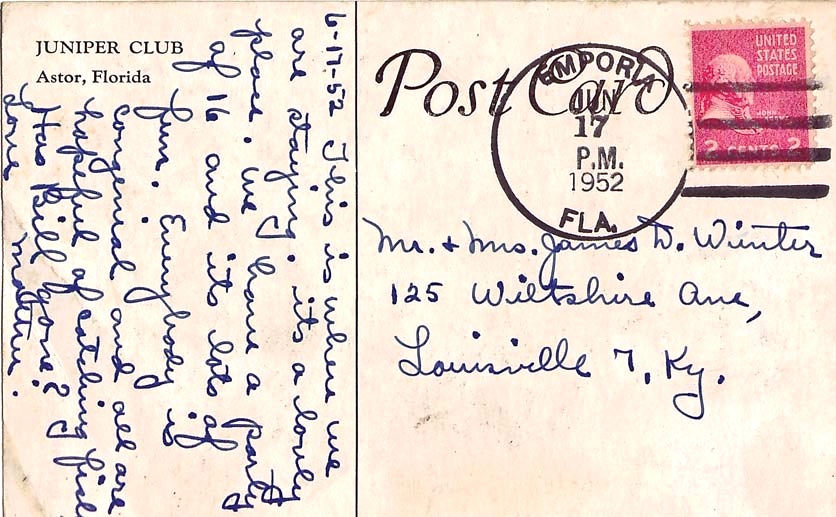 JUNIPER CLUB
Astor, Florida
6-17-52 This is where we
are staying. its a lovely
place. We have a party
of 16 and its lots of
fun. Everybody is
congenial and all are
hopeful of catching
Has Bill gone?
Love
Post Card
EMPORIA
JUN
17
P.M.
1952
FLA.
UNITED
STATES
POSTAGE
JOHN
2 CENTS 2
Mr. + Mrs. James D. Winter
125 Wiltshire Ave,
Louisville 7, Ky.